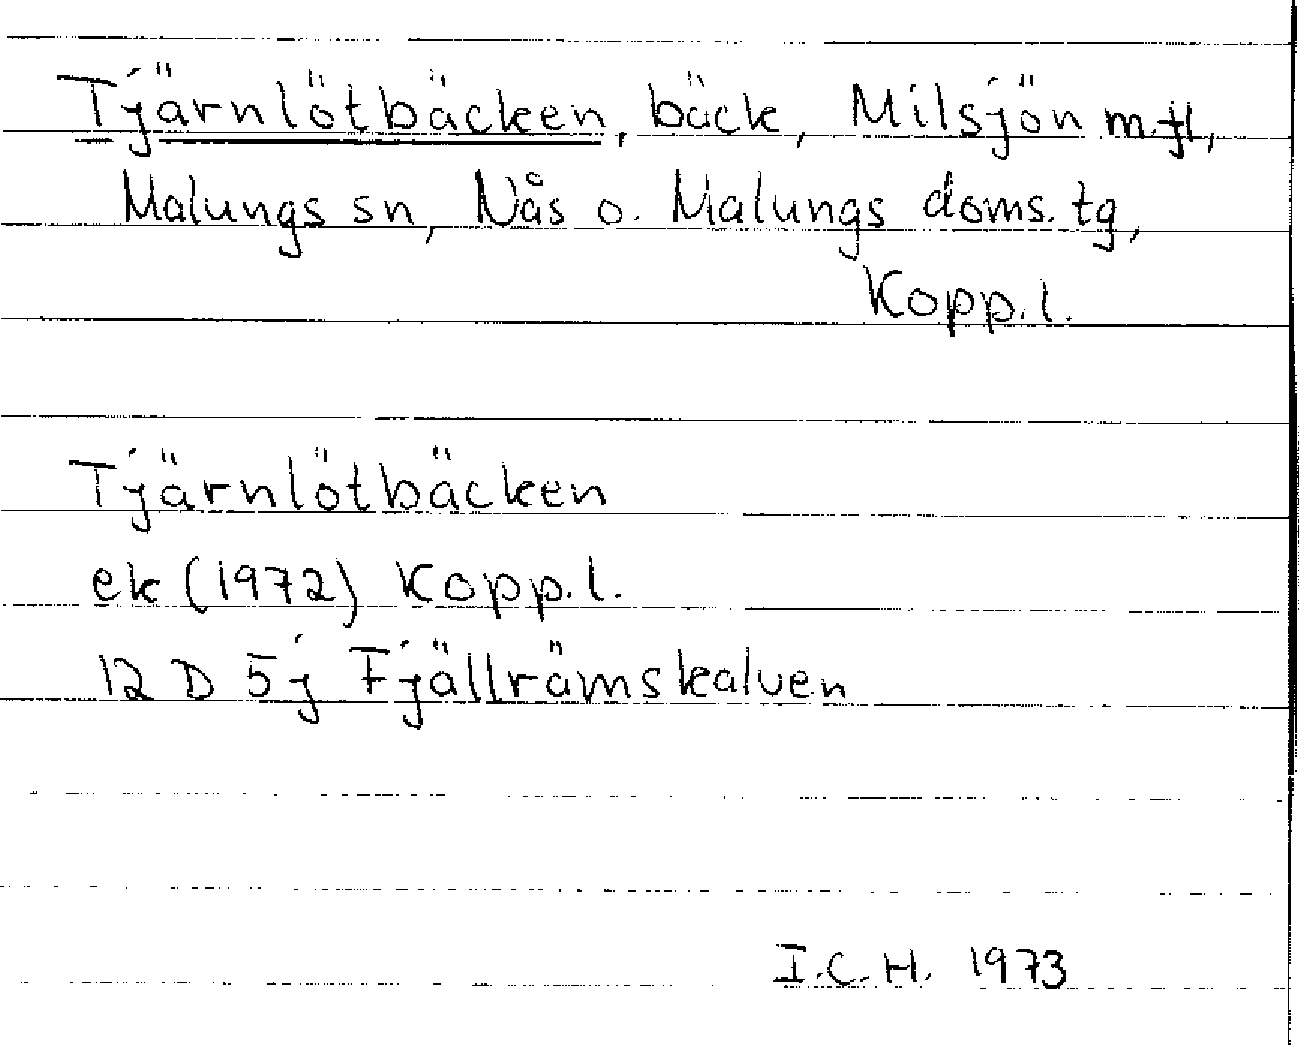 Tjärnlötbäcken, bäck, Milsjön m.fl,
Malungs sn, Nås o. Malungs doms.tg,
Kopp.l.
Tjärnlötbäcken
ek (1972) Kopp.l.
12 D 5j Fjällrämskalven
I.C.H. 1973